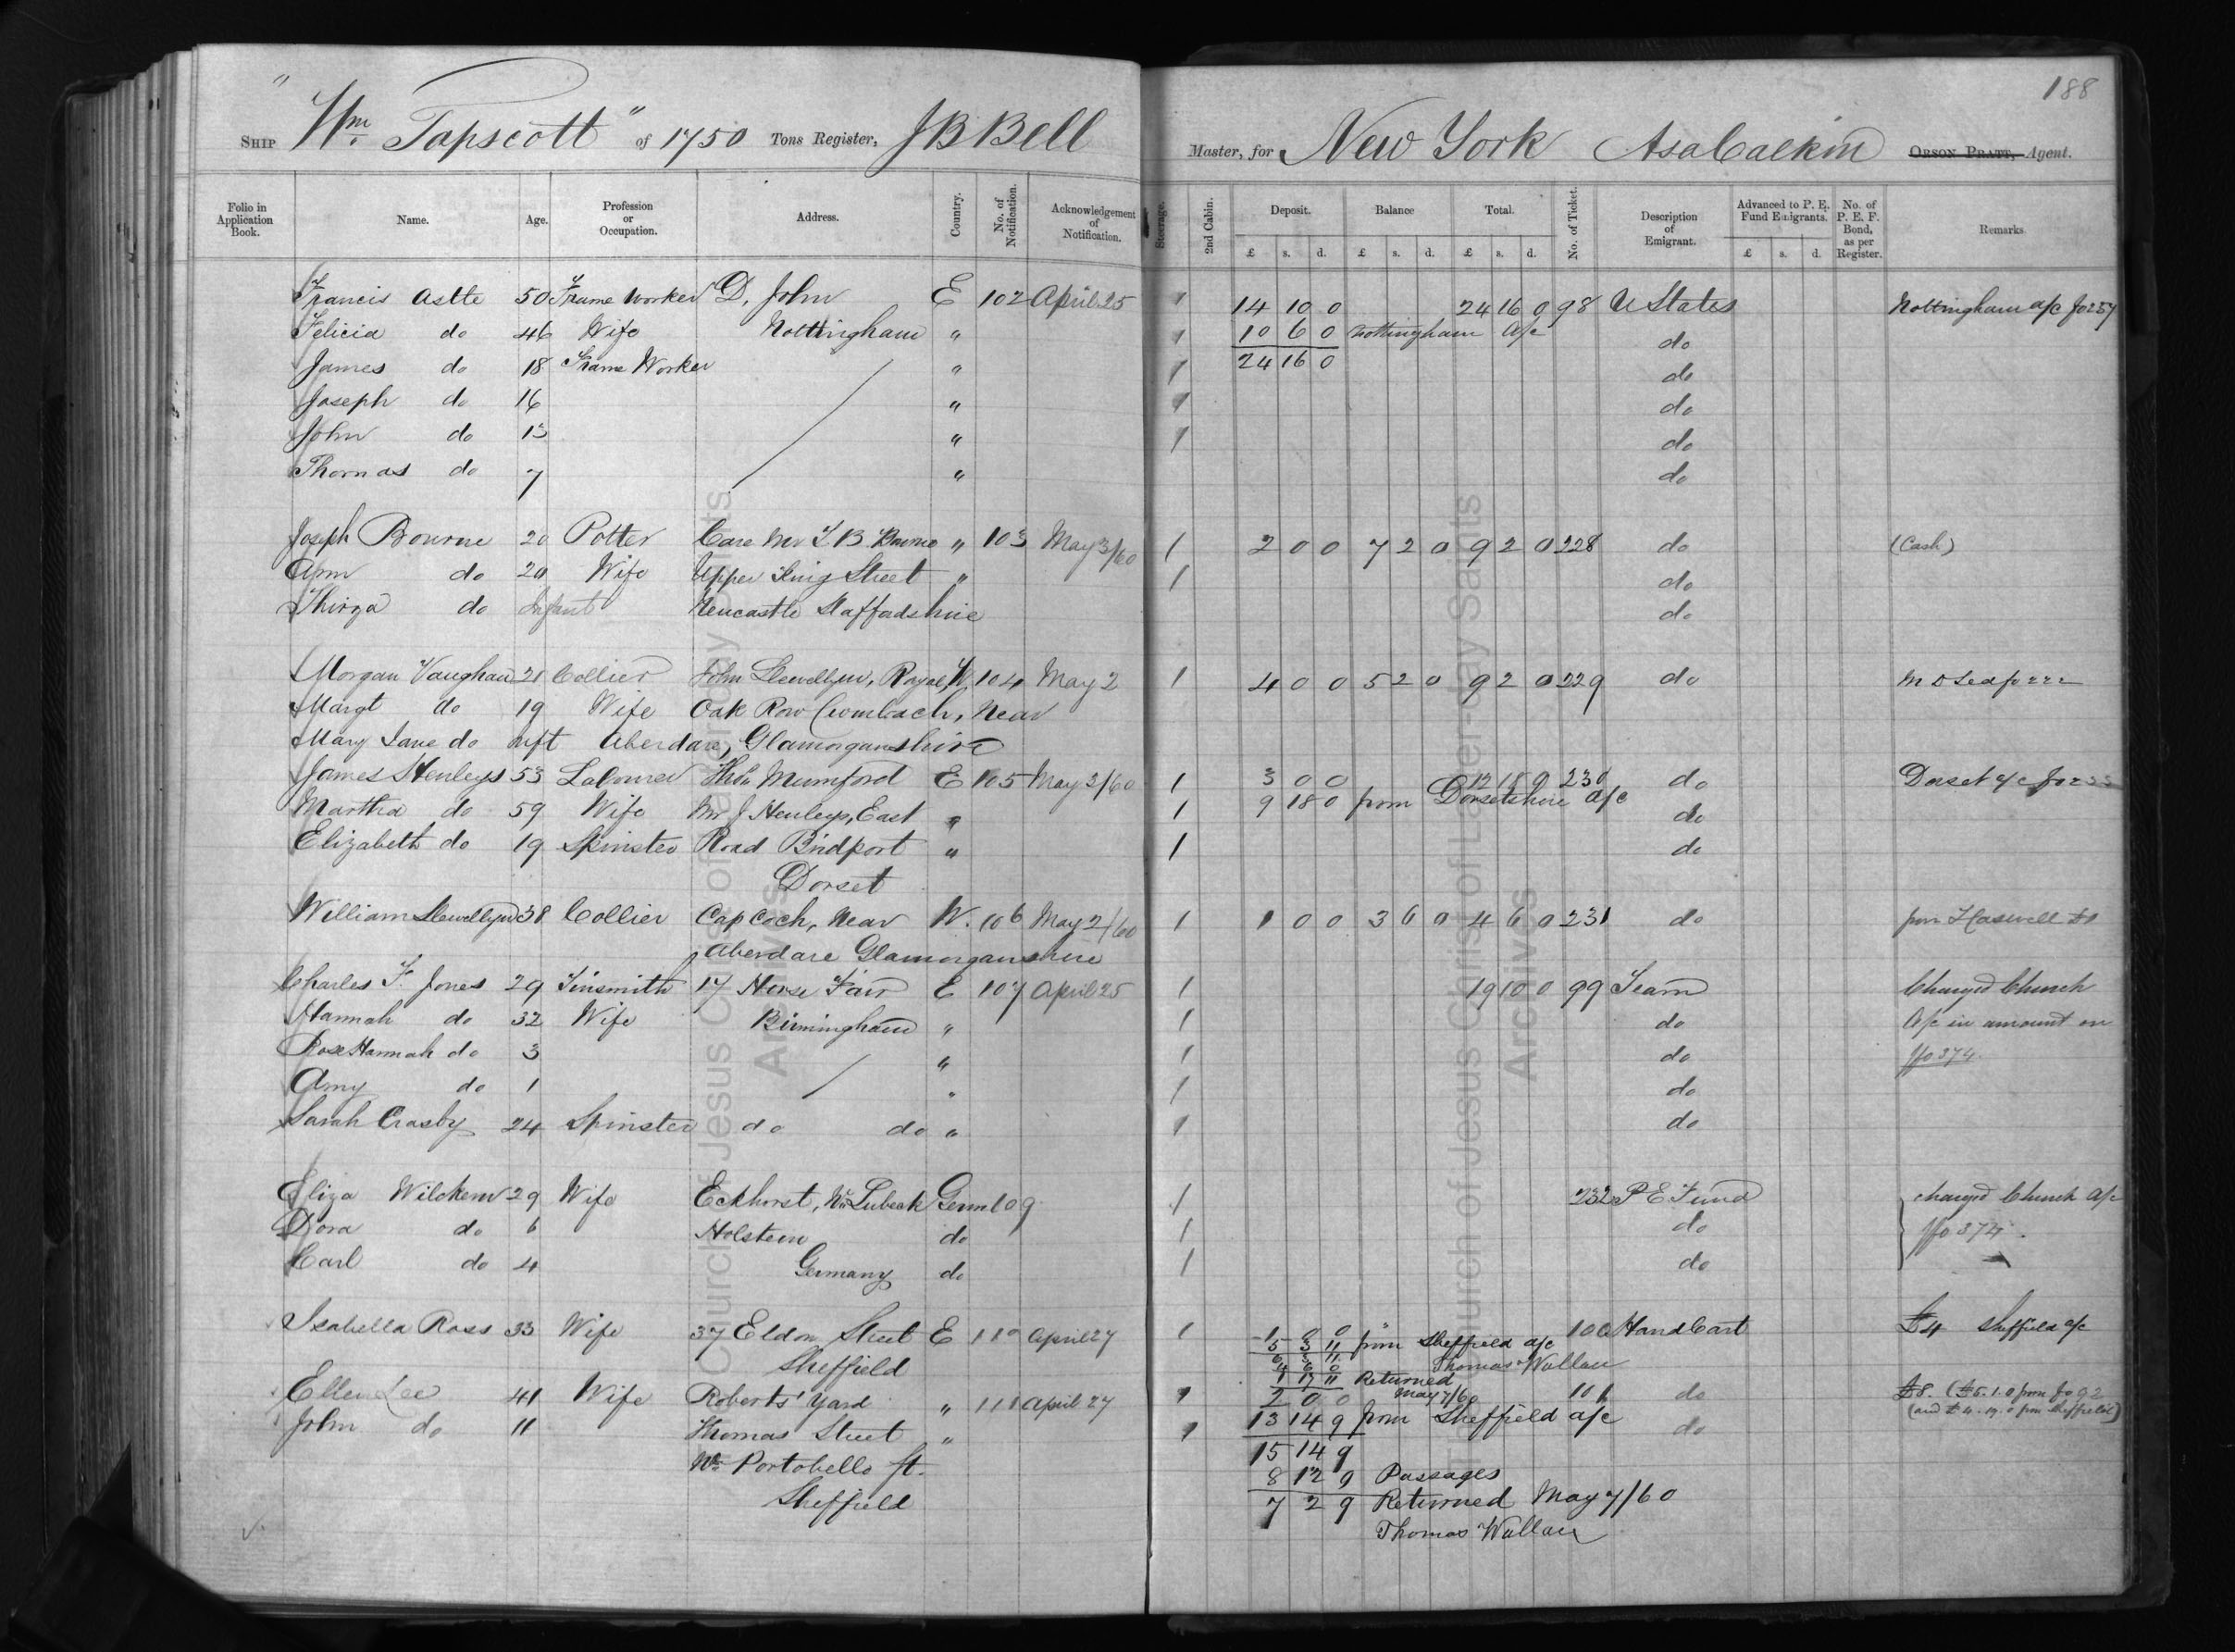 188
Ship "Wm. Tapscott" of 1750 Tons Register, J B Bell Master, for New York Asa Calkin Orson Pratt, Agent.
Folio in Application Book. Name. Age. Profession or Occupation. Address. Country. No. of Notification. Acknowledgement of Notification. Steerage. 2nd Cabin. Deposit. Balance Total. No. of Ticket. Description of Emigrant. Advanced to P. E. Fund Emigrants. No. of P. E. F. Bond, as per Register. Remarks
£ s. d. £ s. d. £ s. d. £ s. d.
Francis Astle 50 Frame Worker D. John E 102 April 25 1 14 10 0 24 16 0 98 U States Nottingham a/c fo 257
Felicia do 46 Wife Nottingham " 1 10 6 0 Nottingham a/c do
James do 18 Frame Worker " 1 24 16 0 do
Joseph do 16 " 1 do
John do 13 " 1 do
Thomas do 7 " do
Joseph Bourne 20 Potter Care Mr T. B. Bourne " 103 May 3/60 1 2 0 0 7 2 0 9 2 0 228 do (Cash)
Ann do 20 Wife Upper King Street " 1 do
Thirza do Infant Newcastle Staffordshire do
Morgan Vaughan 21 Collier John Llewellyn, Royal W. 104 May 2 1 4 0 0 5 2 0 9 2 0 229 do
Margt do 19 Wife Oak Row Cwmbach, Near
Mary Jane do Inft Aberdare, Glamorganshire
James Henleys 53 Labourer Thos Mumford E 105 May 3/60 1 3 0 0 12 18 0 230 do Dorset a/c
Martha do 59 Wife Mr J Henleys, East " 1 9 18 0 from Dorsetshire a/c do
Elizabeth do 19 Spinster Road Bridport " 1 do
Dorset
William Llewellyn 38 Collier Cap Coch, Near W. 106 May 2/60 1 1 0 0 3 6 0 4 6 0 231 do
Aberdare Glamorganshire
Charles F. Jones 29 Tinsmith 17 Horse Fair E 107 April 25 1 19 10 0 99 Team Charged Church
Hannah do 32 Wife Birmingham " 1 do a/c in amount on
Rose Hannah do 3 " 1 do ffo 374.
Amy do 1 " 1 do
Sarah Crasby 24 Spinster do do " 1 do
Eliza Wilckens 29 Wife Eckhorst, Nr Lubeck Germ 109 1 232 P E Fund charged Church a/c
Dora do 6 Holstein do 1 do ffo 374.
Carl do 4 Germany do 1 do
Isabella Ross 33 Wife 37 Eldon Street E 110 April 27 1 1 0 0 100 Hand Cart £4 Sheffield a/c
5 3 11 from Sheffield a/c
Sheffield 6 3 11 Thomas Wallace
4 6 0
1 17 11 Returned May 7/60
Ellen Lee 41 Wife Roberts' Yard " 111 April 27 1 2 0 0 101 do £8. (£5.1.0 from fo 92
John do 11 Thomas Street " 1 13 14 9 from Sheffield a/c do (and £4.19.0 from Sheffield)
Nr Portobello St. 15 14 9
8 12 0 Passages
Sheffield 7 2 9 Returned May 7/60
Thomas Wallace
Church of Jesus Christ of Latter-day Saints
Archives
Church of Jesus Christ of Latter-day Saints
Archives